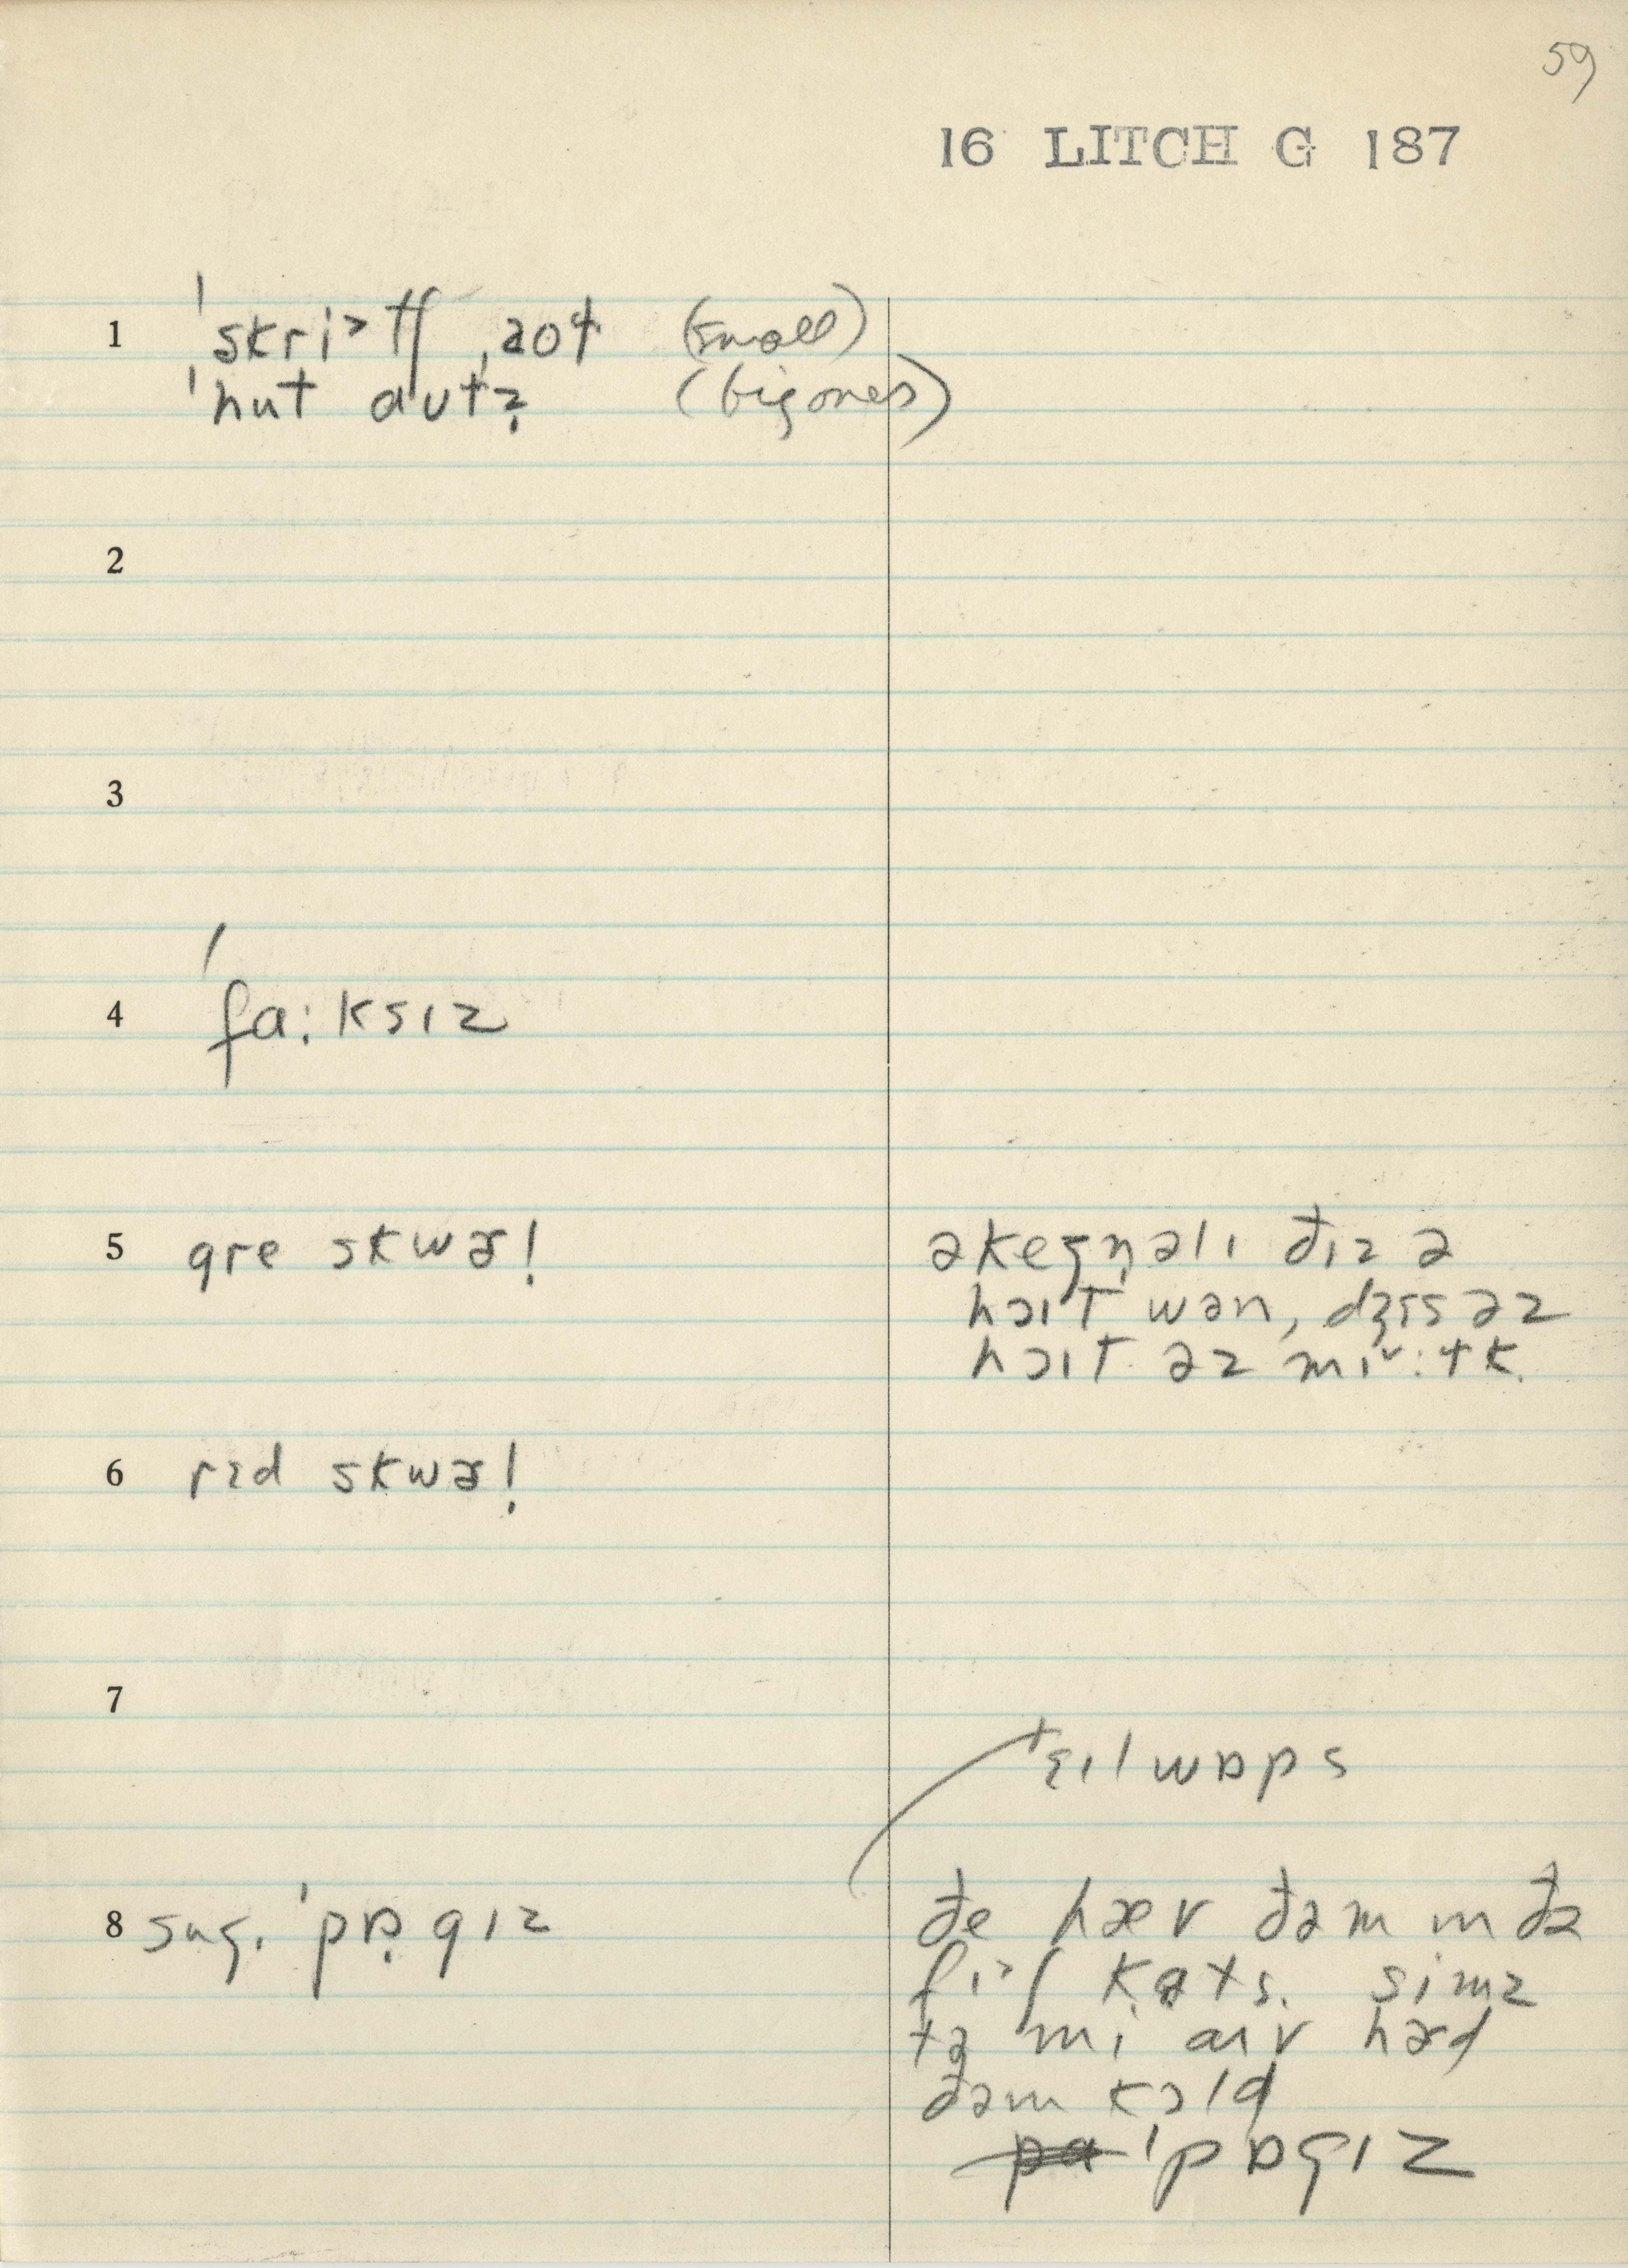 59
16 LITCH G 187
1 ˈskriᵊtʃ ˌaʊt (small)
ˈhut aʊtz (big ones)
2
3
4 ˈfɑ:ksɪz
5 gre skwɚ! əkeʒn̩əlɪ ðɪz ə
hɔɪt wən, dʒɪs əz
hɔɪt əz mɪˇ:tk.
6 rɛd skwɚ!
7
tɛɪlwɒps
8 sug. ˈpɒ̣gɪz ðe hæv ðəm ɪn ðə
fɪᵊʃ kɑts. simz
tə mi aɪv hɚd
ðəm kɔld
ˈpɒgɪz